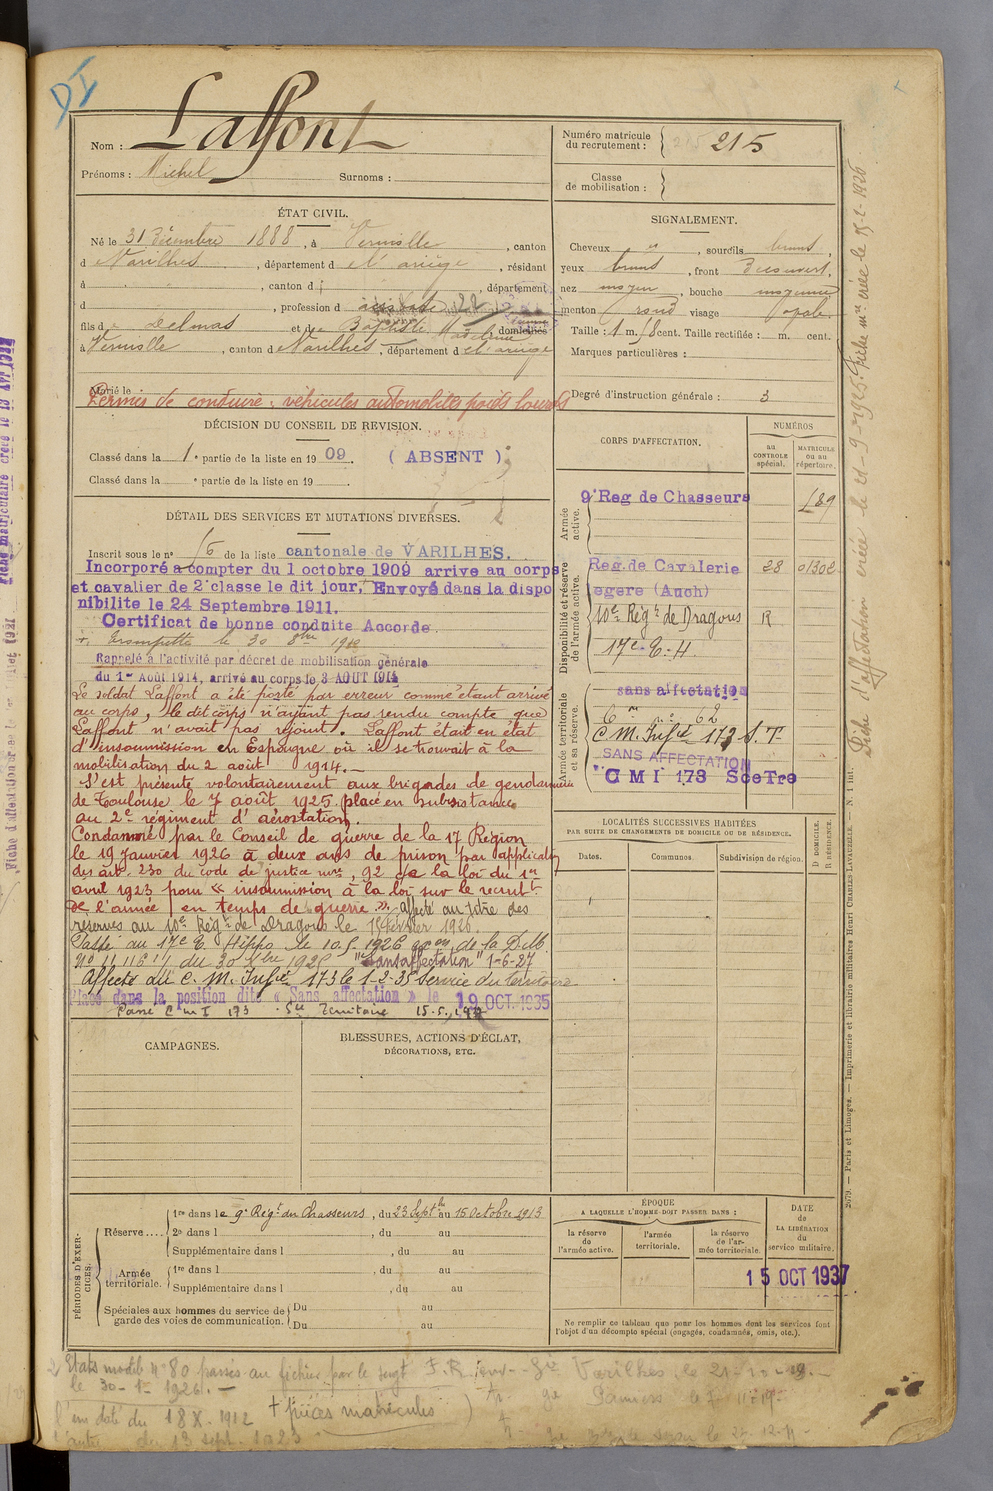 DI
Nom : Laffont
Prénoms : Michel Surnoms :
Numéro matricule du recrutement : 215
Classe de mobilisation :
ÉTAT CIVIL.
Né le 31 Décembre 1888, à Verniolle, canton
d Varilhes, département d e l'ariège, résidant
à , canton d , département
d , profession d
fils de Delmas et de Baptiste Madeleine, domiciliés
à Verniolle, canton de Varilhes, département de l'ariège
Marié le
Permis de conduire : véhicules automobiles poids lourds
SIGNALEMENT.
Cheveux , sourcils bruns,
yeux bruns, front Découvert,
nez moyen, bouche moyenne
menton rond visage ovale.
Taille : 1 m. cent. Taille rectifiée : m. cent.
Marques particulières :
Degré d'instruction générale : 3
DÉCISION DU CONSEIL DE REVISION.
Classé dans la 1e partie de la liste en 1909 ( ABSENT )
Classé dans la e partie de la liste en 19
DÉTAIL DES SERVICES ET MUTATIONS DIVERSES.
Inscrit sous le no 16 de la liste cantonale de VARILHES.
Incorporé a compter du 1 octobre 1909 arrive au corps
et cavalier de 2e classe le dit jour, Envoyé dans la dispo
nibilite le 24 Septembre 1911.
Certificat de bonne conduite Accorde
Trompette le 30 8bre 1910
Rappelé à l'activité par décret de mobilisation générale
du 1er Août 1914, arrivé au corps le 3 AOUT 1914
Le soldat Laffont a été porté par erreur comme étant arrivé
au corps, le dit corps n'ayant pas rendu compte que
Laffont n'avait pas rejoint. Laffont était en état
d'insoumission en Espagne où il se trouvait à la
mobilisation du 2 août 1914.
S'est présenté volontairement aux brigades de gendarmerie
de Toulouse le 7 août 1925 placé en subsistance
au 2e régiment d'aérostation.
Condamné par le Conseil de guerre de la 17 Région
le 19 Janvier 1926 à deux ans de prison par application
des art. 230 du code de justice mre, 92 de la loi du 1er
avril 1923 pour « insoumission à la loi sur le recrutt
de l'armée en temps de guerre ». affecté au titre des
réserves au 10e Régt de Dragons le 15 février 1926.
Passé au 17e E. Hippo. le 10.5.1926 de la D.M.
No 11116 du 30 1925 "Sans affectation" 1-6-27
Affecté au C. M. Infie 173 le 1-2-35 Service du territoire
Placé dans la position dite « Sans affectation » le 19 OCT. 1935
Passé C M I 173 Sce Territoire 15-5-
CORPS D'AFFECTATION.
NUMÉROS
au CONTROLE spécial.
MATRICULE ou au répertoire.
Armée active.
9e Reg de Chasseurs 189
Disponibilité et réserve de l'armée active.
Reg. de Cavalerie 28 01302
legere (Auch)
10e Régt de Dragons R
17e E. H.
Armée territoriale et sa réserve.
sans affectation
62
C M. Infie 173 S. T
SANS AFFECTATION
C M I 173 SceTre
LOCALITÉS SUCCESSIVES HABITÉES
PAR SUITE DE CHANGEMENTS DE DOMICILE OU DE RÉSIDENCE.
Dates. Communes. Subdivision de région. D DOMICILE. R RÉSIDENCE.
CAMPAGNES.
BLESSURES, ACTIONS D'ÉCLAT,
DÉCORATIONS, ETC.
PÉRIODES D'EXERCICES.
Réserve....
1re dans le 9e Régt de Chasseurs, du 23 Septbre au 15 Octobre 1913
2e dans l , du au
Supplémentaire dans l , du au
Armée territoriale.
1re dans l , du au
Supplémentaire dans l , du au
Spéciales aux hommes du service de garde des voies de communication.
Du au
Du au
ÉPOQUE
A LAQUELLE L'HOMME DOIT PASSER DANS :
la réserve de l'armée active.
l'armée territoriale.
la réserve de l'armée territoriale.
DATE de la LIBÉRATION du service militaire.
15 OCT 1937
Ne remplir ce tableau que pour les hommes dont les services font
l'objet d'un décompte spécial (engagés, condamnés, omis, etc.).
2 Etats modèle no 80 passés au fichier par le sergt
le 30-1-1926.
l'un daté du 18 X. 1912 + pièces matricules
l'autre du 13 sept. 1923
Varilhes, le 21-10-
Pamiers le 7-11-19
Fiche d'affectation créée le
Fiche mle créée le 15-2-1926
2679. — Paris et Limoges. — Imprimerie et librairie militaires Henri CHARLES-LAVAUZELLE. — N. 1 int.
Fiche matriculaire créée le 15 AVR
Fiche d'affectation créée le Juillet 1921